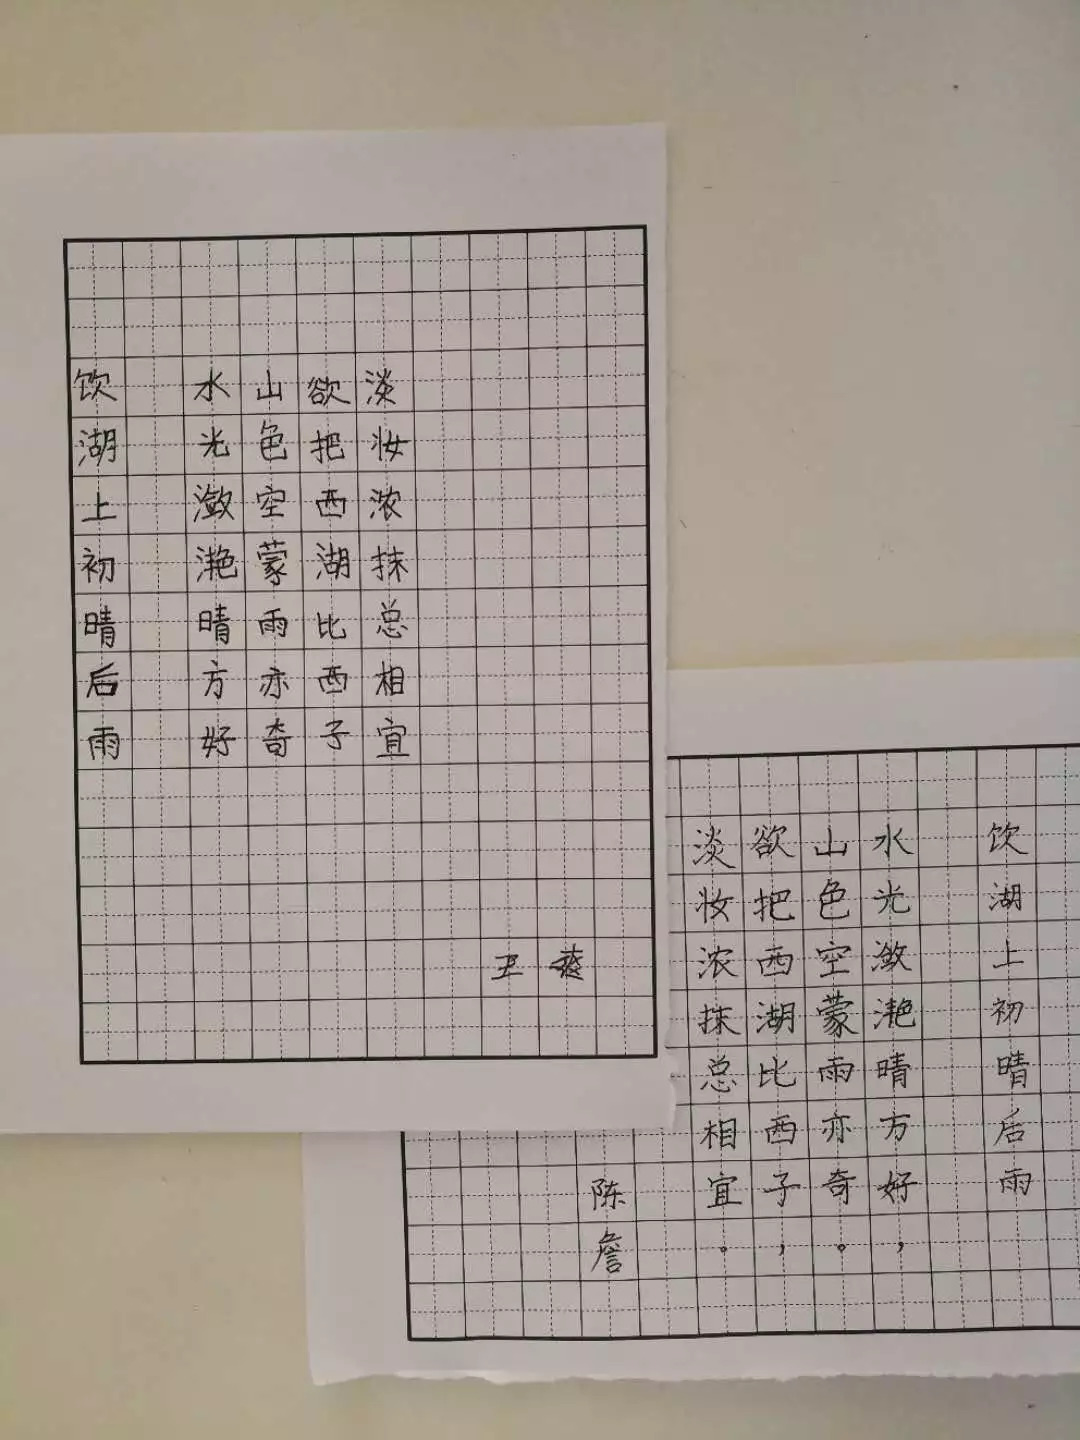 饮湖上初晴后雨
水光潋滟晴方好
山色空蒙雨亦奇
欲把西湖比西子
淡妆浓抹总相宜
饮湖上初晴后雨
水光潋滟晴方好，
山色空蒙雨亦奇。
欲把西湖比西子，
淡妆浓抹总相宜。
陈詹